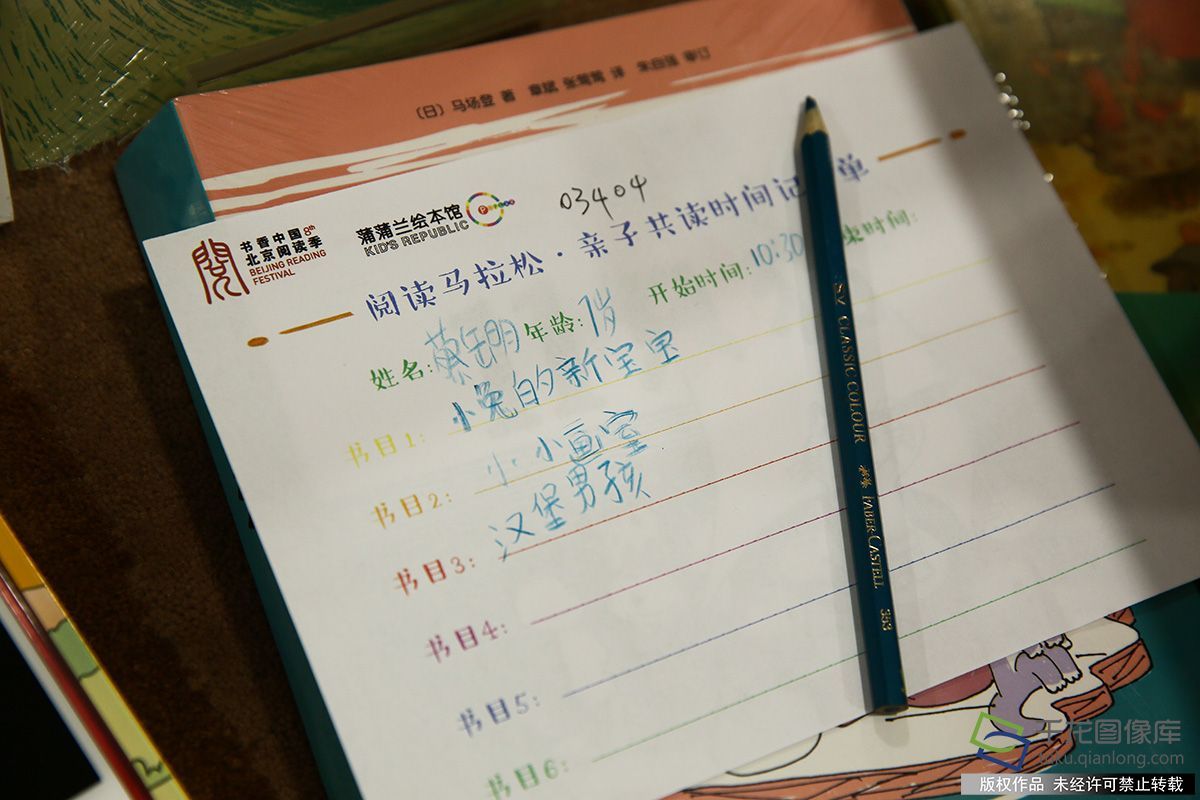 (日) 马场登 著 章斌 张莺莺 译 朱自强 审订
书香中国 8th
北京阅读季
BEIJING READING
FESTIVAL
蒲蒲兰绘本馆
KID'S REPUBLIC
03404
阅读马拉松·亲子共读时间记 单
姓名: 年龄: 1岁 开始时间: 10:30 束时间:
书目1: 小兔的新宝宝
书目2: 小小画室
书目3: 汉堡男孩
书目4:
书目5:
书目6:
CLASSIC COLOUR FABER-CASTELL 353
千龙图像库
tuku.qianlong.com
版权作品 未经许可禁止转载